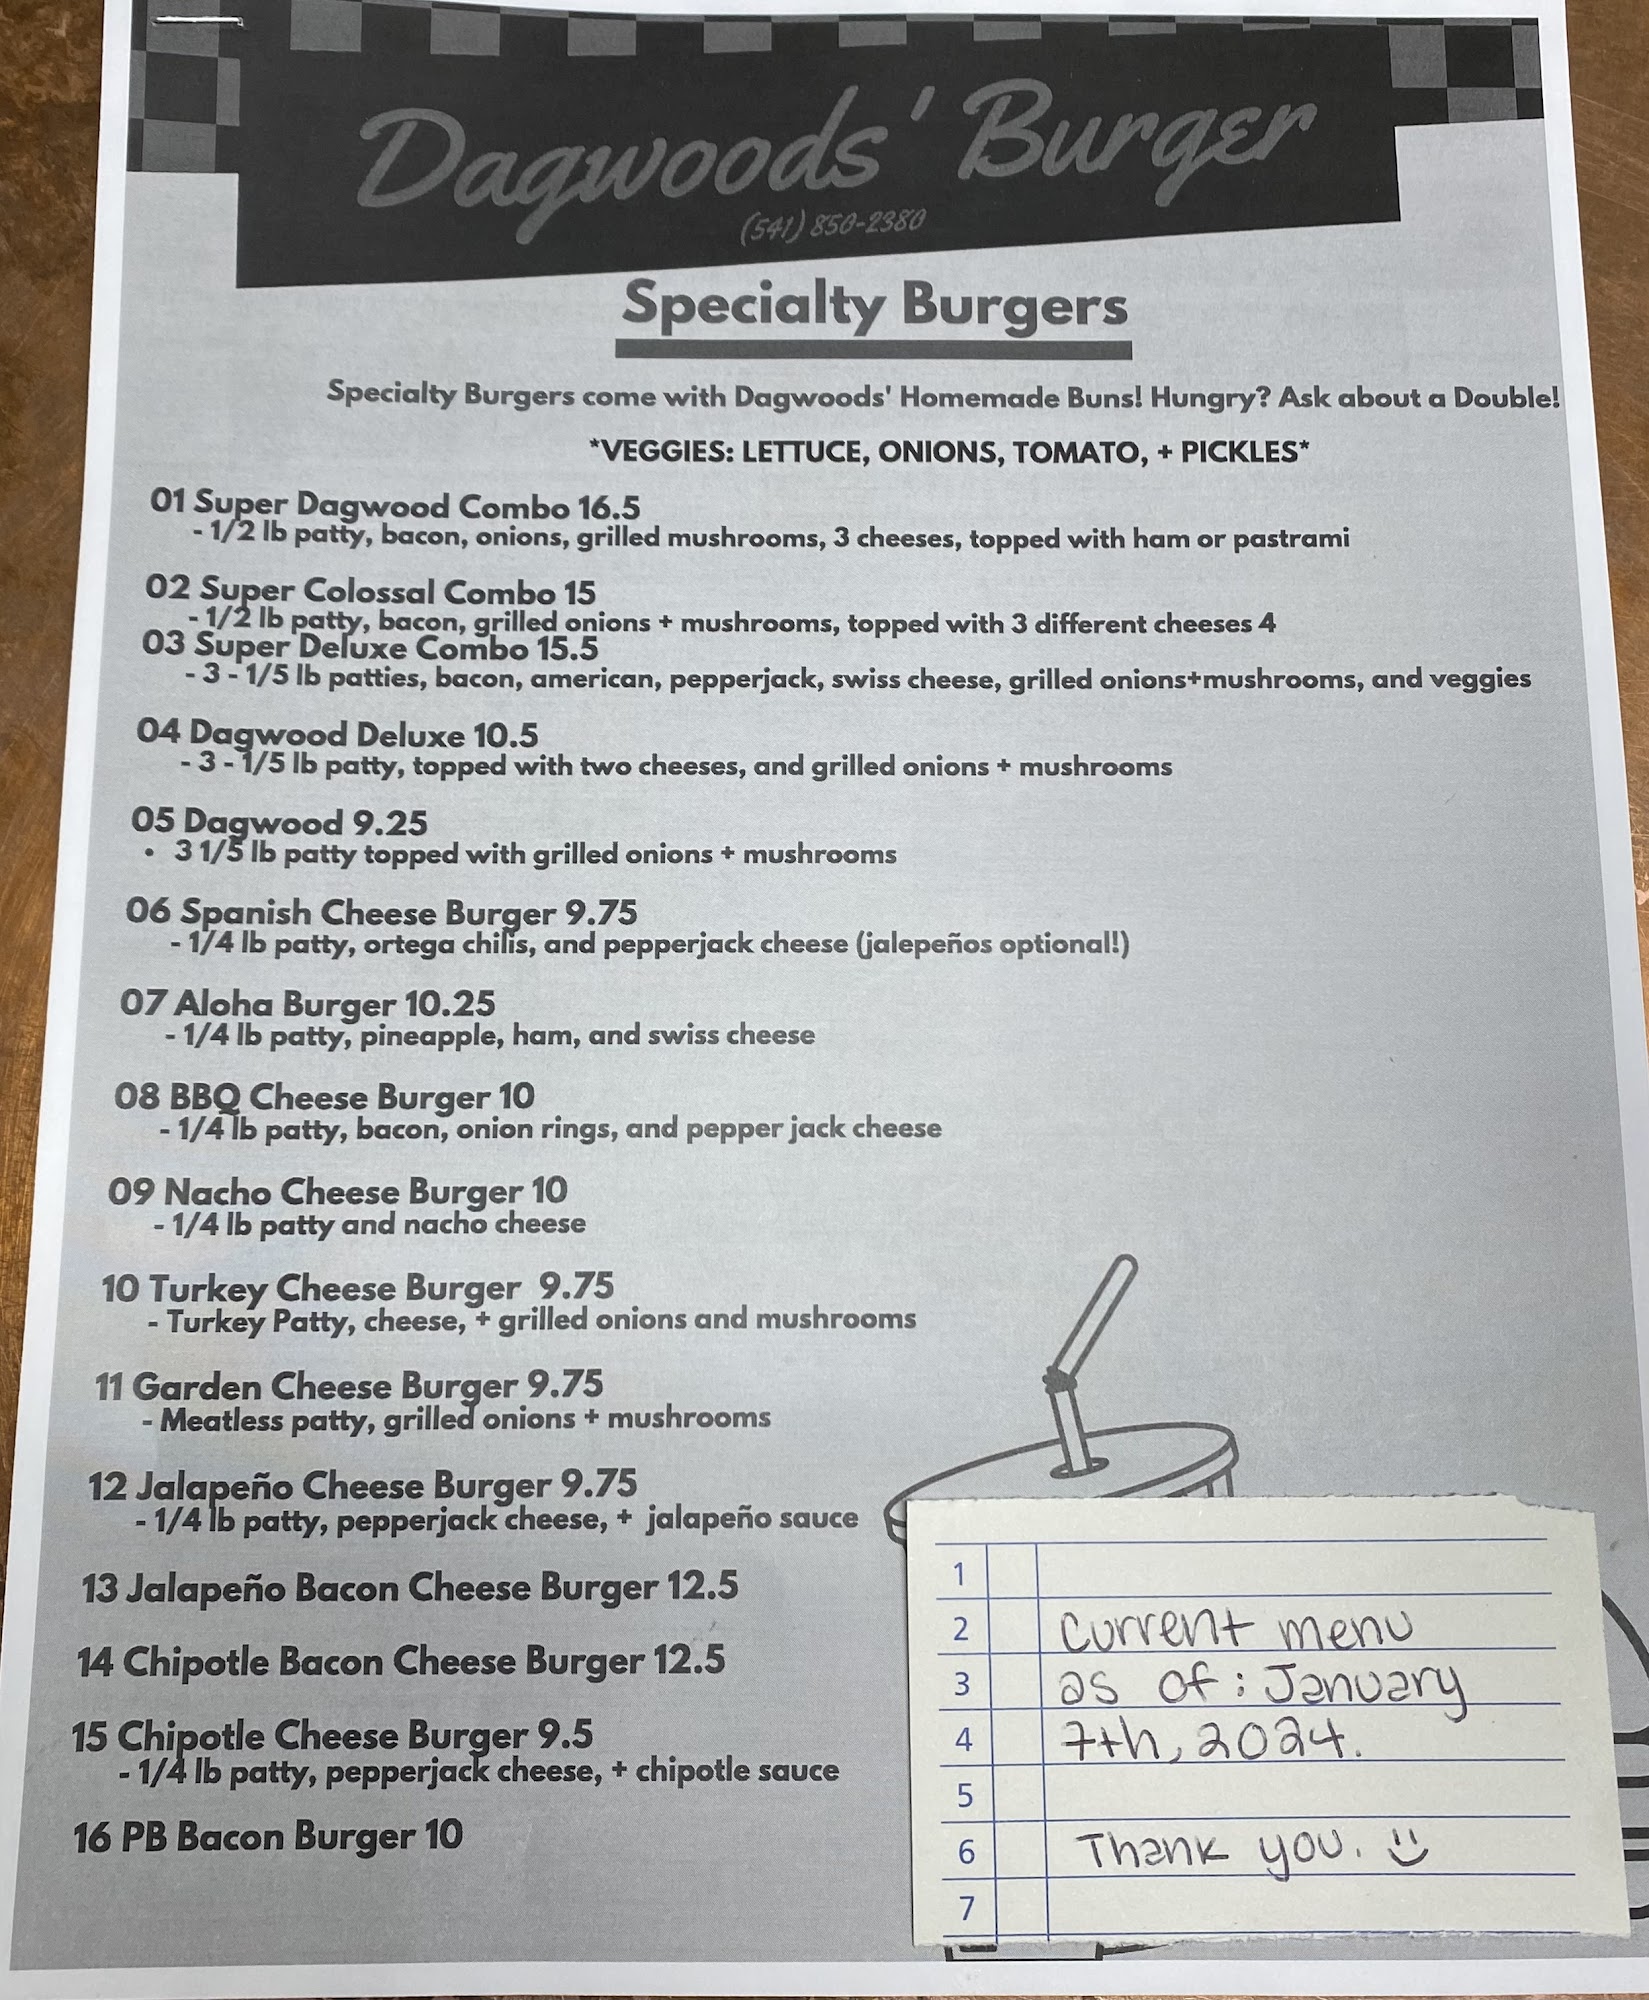 Dagwoods' Burger
(541) 850-2380
Specialty Burgers
Specialty Burgers come with Dagwoods' Homemade Buns! Hungry? Ask about a Double!
*VEGGIES: LETTUCE, ONIONS, TOMATO, + PICKLES*
01 Super Dagwood Combo 16.5
- 1/2 lb patty, bacon, onions, grilled mushrooms, 3 cheeses, topped with ham or pastrami
02 Super Colossal Combo 15
- 1/2 lb patty, bacon, grilled onions + mushrooms, topped with 3 different cheeses 4
03 Super Deluxe Combo 15.5
- 3 - 1/5 lb patties, bacon, american, pepperjack, swiss cheese, grilled onions+mushrooms, and veggies
04 Dagwood Deluxe 10.5
- 3 - 1/5 lb patty, topped with two cheeses, and grilled onions + mushrooms
05 Dagwood 9.25
• 3 1/5 lb patty topped with grilled onions + mushrooms
06 Spanish Cheese Burger 9.75
- 1/4 lb patty, ortega chilis, and pepperjack cheese (jalepeños optional!)
07 Aloha Burger 10.25
- 1/4 lb patty, pineapple, ham, and swiss cheese
08 BBQ Cheese Burger 10
- 1/4 lb patty, bacon, onion rings, and pepper jack cheese
09 Nacho Cheese Burger 10
- 1/4 lb patty and nacho cheese
10 Turkey Cheese Burger 9.75
- Turkey Patty, cheese, + grilled onions and mushrooms
11 Garden Cheese Burger 9.75
- Meatless patty, grilled onions + mushrooms
12 Jalapeño Cheese Burger 9.75
- 1/4 lb patty, pepperjack cheese, + jalapeño sauce
13 Jalapeño Bacon Cheese Burger 12.5
14 Chipotle Bacon Cheese Burger 12.5
15 Chipotle Cheese Burger 9.5
- 1/4 lb patty, pepperjack cheese, + chipotle sauce
16 PB Bacon Burger 10
1
2 current menu
3 as of: January
4 7th, 2024.
5
6 Thank you. :)
7